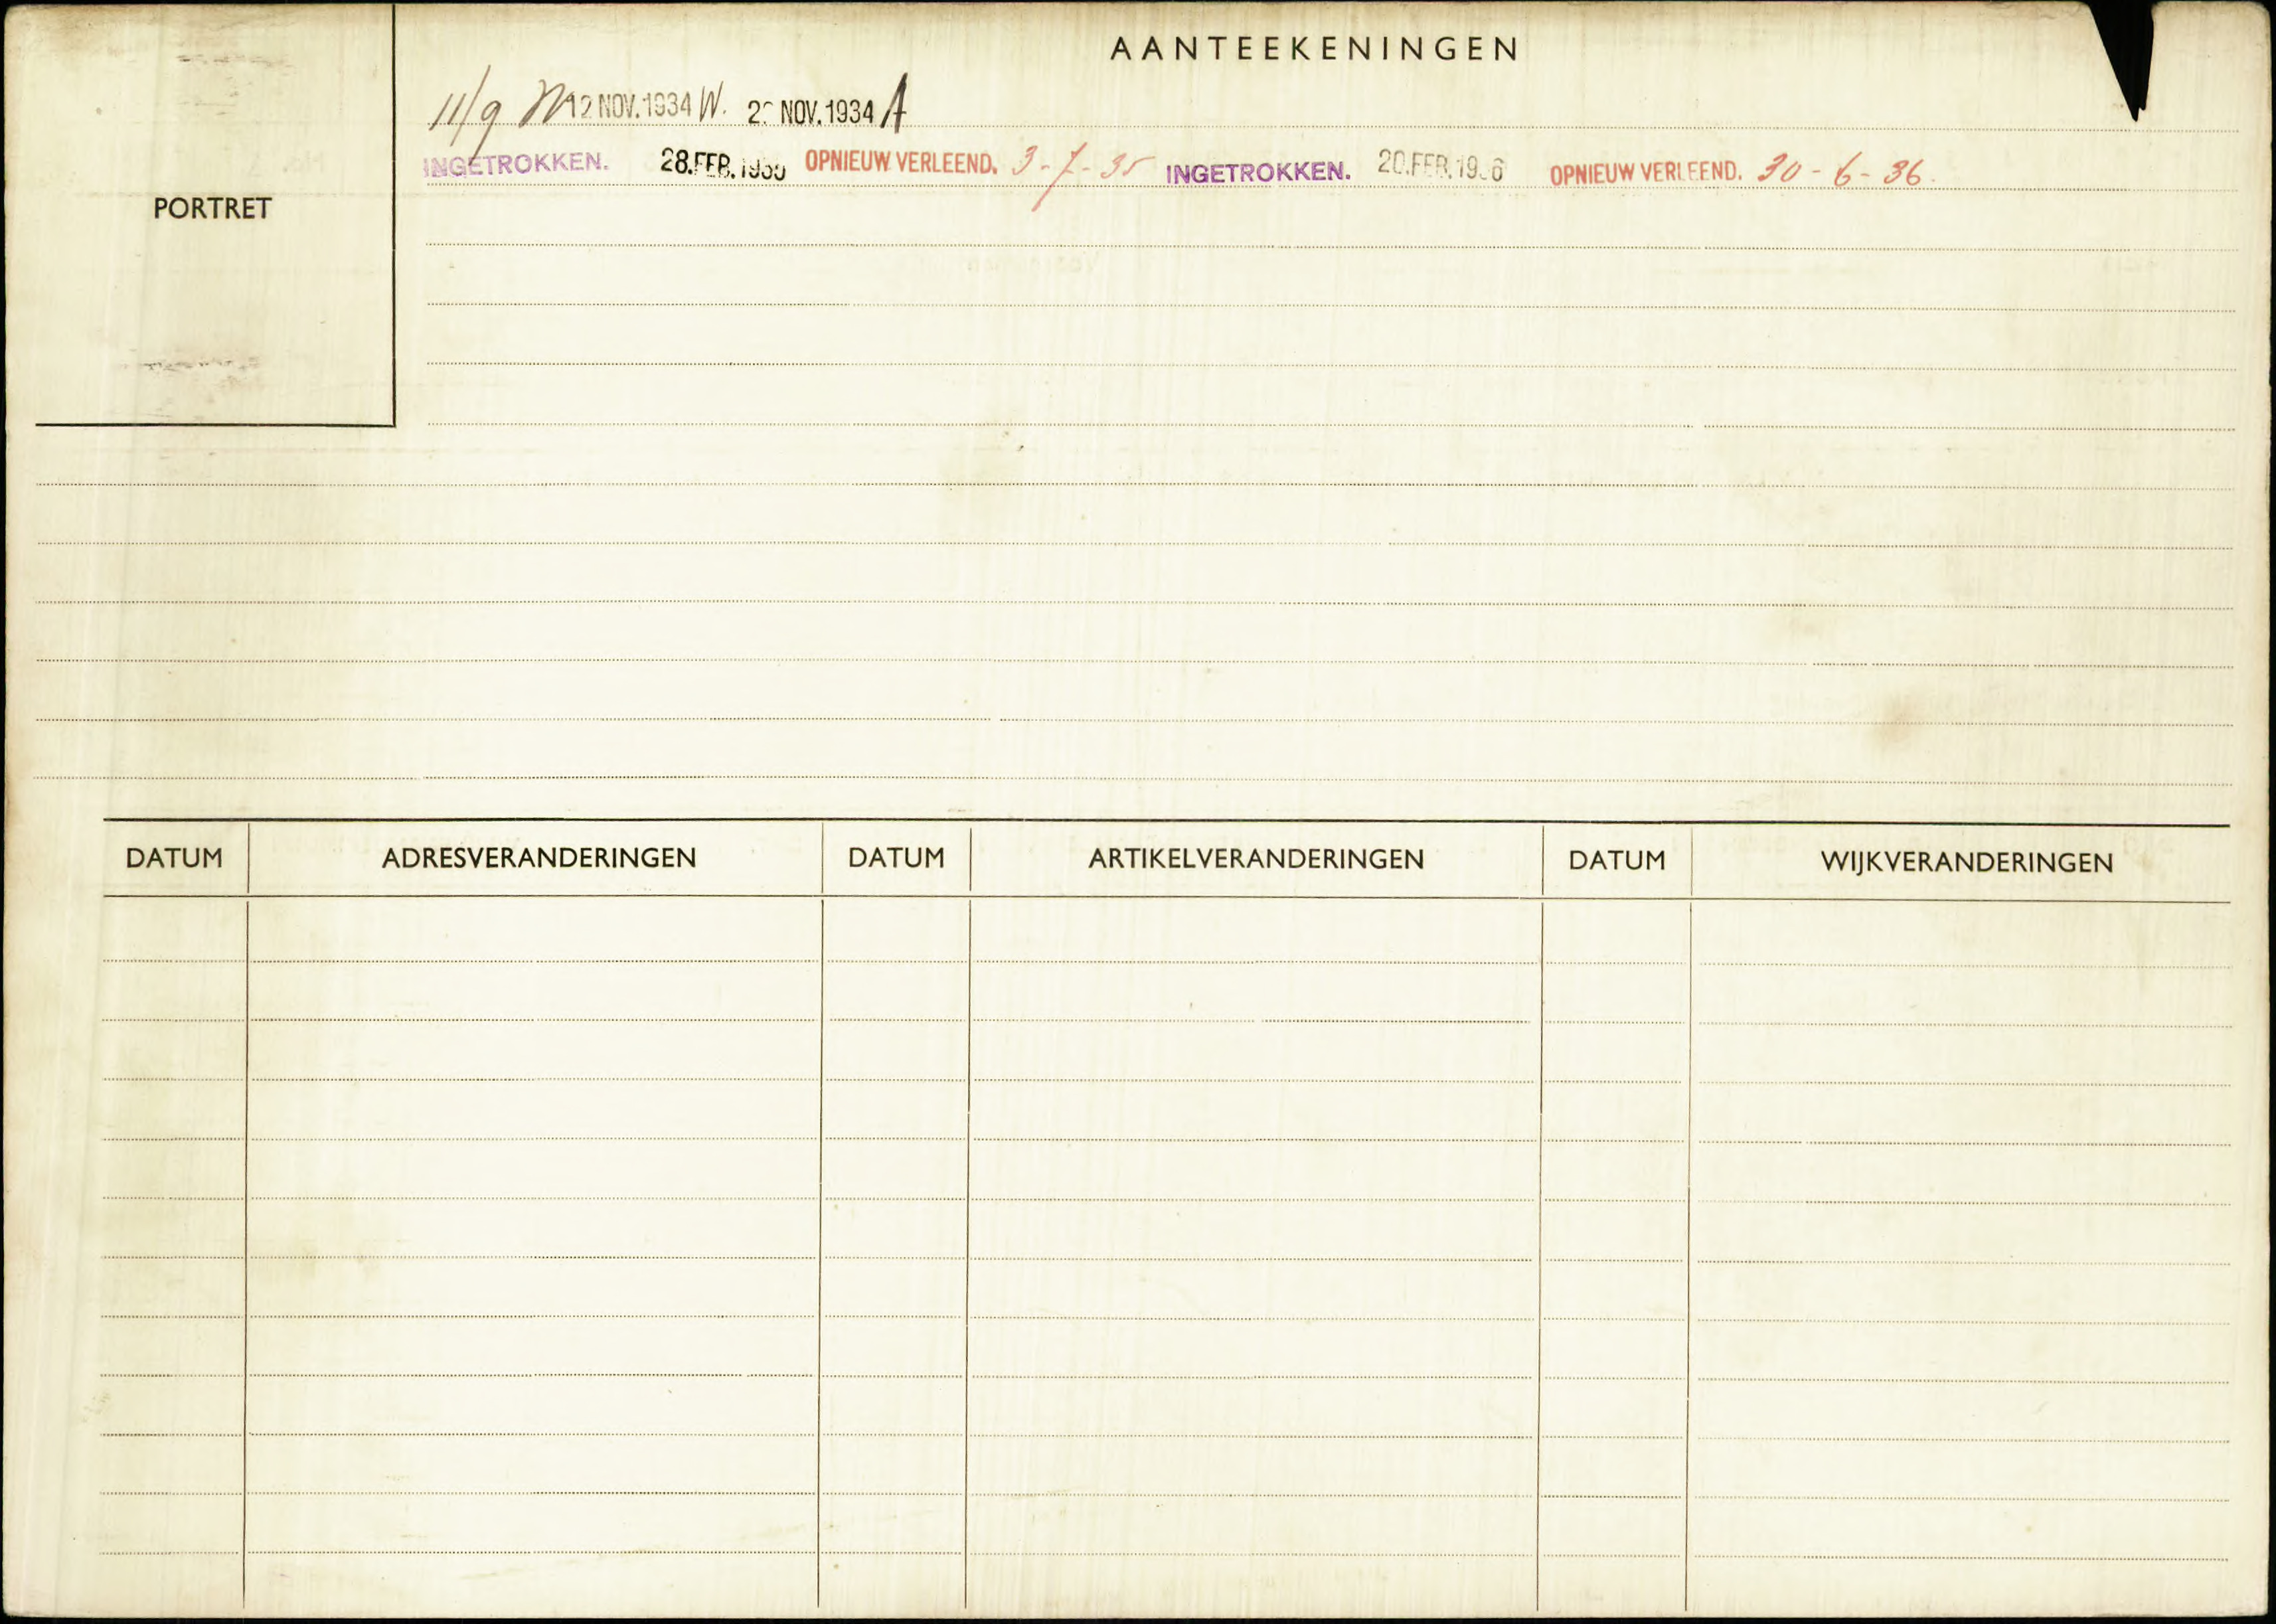 AANTEEKENINGEN
11/9 12 NOV. 1934 W. NOV. 1934 A
INGETROKKEN. 28. FEB. 1935 OPNIEUW VERLEEND. 3-7-35 INGETROKKEN. 20. FEB. 1936 OPNIEUW VERLEEND. 30-6-36.
PORTRET
DATUM ADRESVERANDERINGEN DATUM ARTIKELVERANDERINGEN DATUM WIJKVERANDERINGEN